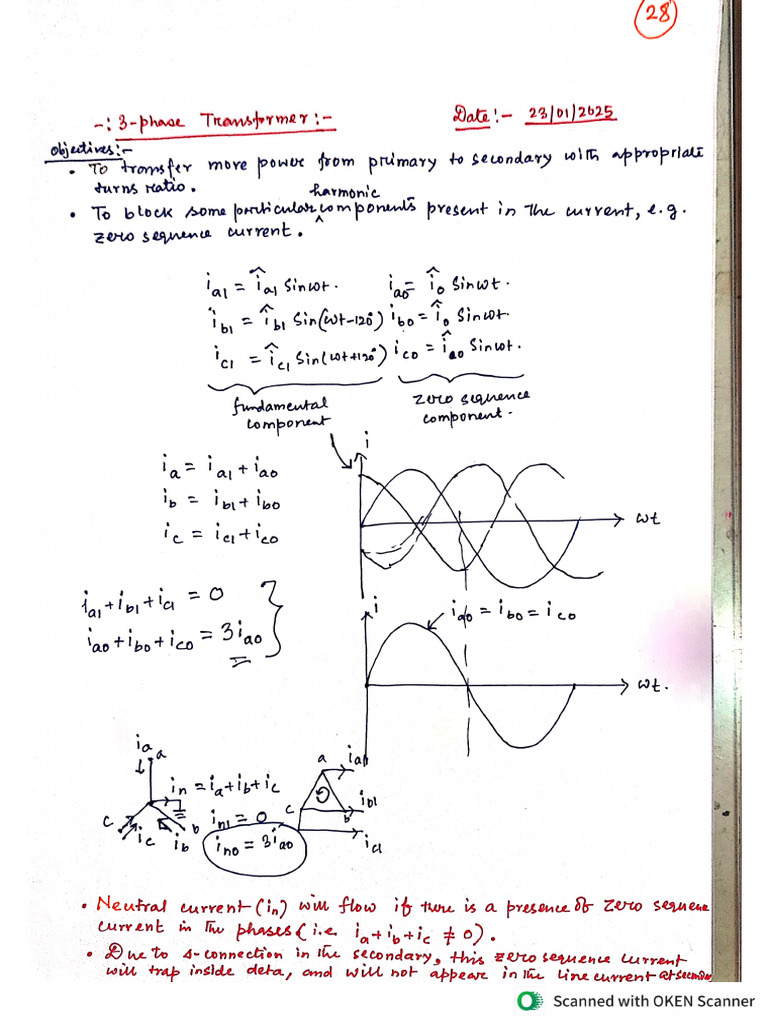 28
-: 3-phase Transformer:-
Date:- 23/01/2025
Objectives:-
• To transfer more power from primary to secondary with appropriate
turns ratio.
harmonic
• To block some particular ^ components present in the current, e.g.
zero sequence current.
i_a1 = î_a1 Sinωt. i_a0 = î_0 Sinωt.
i_b1 = î_b1 Sin(ωt-120°) i_b0 = î_0 Sinωt.
i_c1 = î_c1 Sin(ωt+120°) i_c0 = î_a0 Sinωt.
fundamental component
zero sequence component.
i
i_a = i_a1 + i_a0
i_b = i_b1 + i_b0
i_c = i_c1 + i_c0
ωt
i_a1 + i_b1 + i_c1 = 0
i_a0 + i_b0 + i_c0 = 3i_a0
i
i_a0 = i_b0 = i_c0
ωt.
i_a
a
i_n = i_a + i_b + i_c
c
i_c
i_b
b
i_n1 = 0
i_n0 = 3i_a0
a
i_a1
c
b
i_b1
i_c1
• Neutral current (i_n) will flow if there is a presence of zero sequence
current in the phases (i.e. i_a + i_b + i_c ≠ 0).
• Due to Δ-connection in the secondary, this zero sequence current
will trap inside delta, and will not appear in the line current at secondary
Scanned with OKEN Scanner